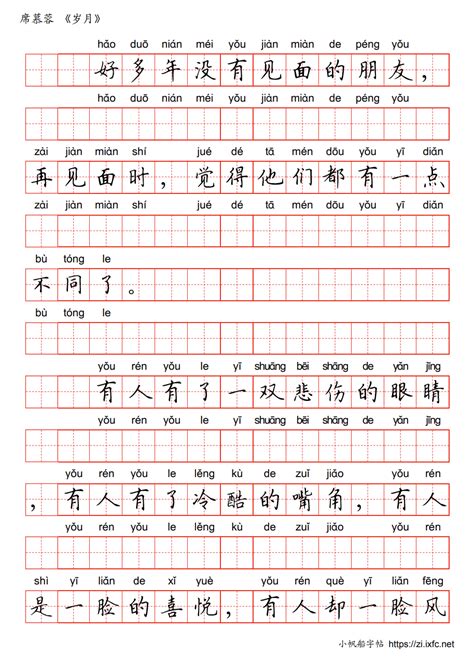 席慕蓉 《岁月》
hǎo duō nián méi yǒu jiàn miàn de péng yǒu
好多年没有见面的朋友，
hǎo duō nián méi yǒu jiàn miàn de péng yǒu
zài jiàn miàn shí jué dé tā mén dōu yǒu yī diǎn
再见面时，觉得他们都有一点
zài jiàn miàn shí jué dé tā mén dōu yǒu yī diǎn
bù tóng le
不同了。
bù tóng le
yǒu rén yǒu le yī shuāng bēi shāng de yǎn jīng
有人有了一双悲伤的眼睛
yǒu rén yǒu le yī shuāng bēi shāng de yǎn jīng
yǒu rén yǒu le lěng kù de zuǐ jiǎo yǒu rén
，有人有了冷酷的嘴角，有人
yǒu rén yǒu le lěng kù de zuǐ jiǎo yǒu rén
shì yī liǎn de xǐ yuè yǒu rén què yī liǎn fēng
是一脸的喜悦，有人却一脸风
小帆船字帖 https://zi.ixfc.net